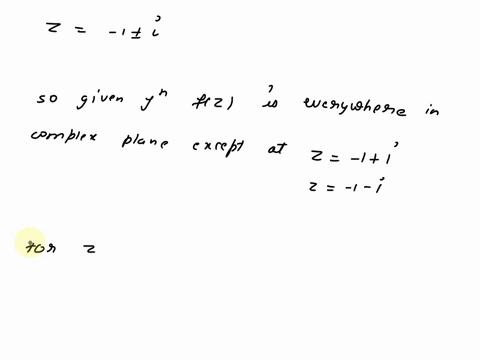 z = -1 ± i
so given yⁿ f(z) is everywhere in
complex plane except at z = -1 + i
z = -1 - i
for z